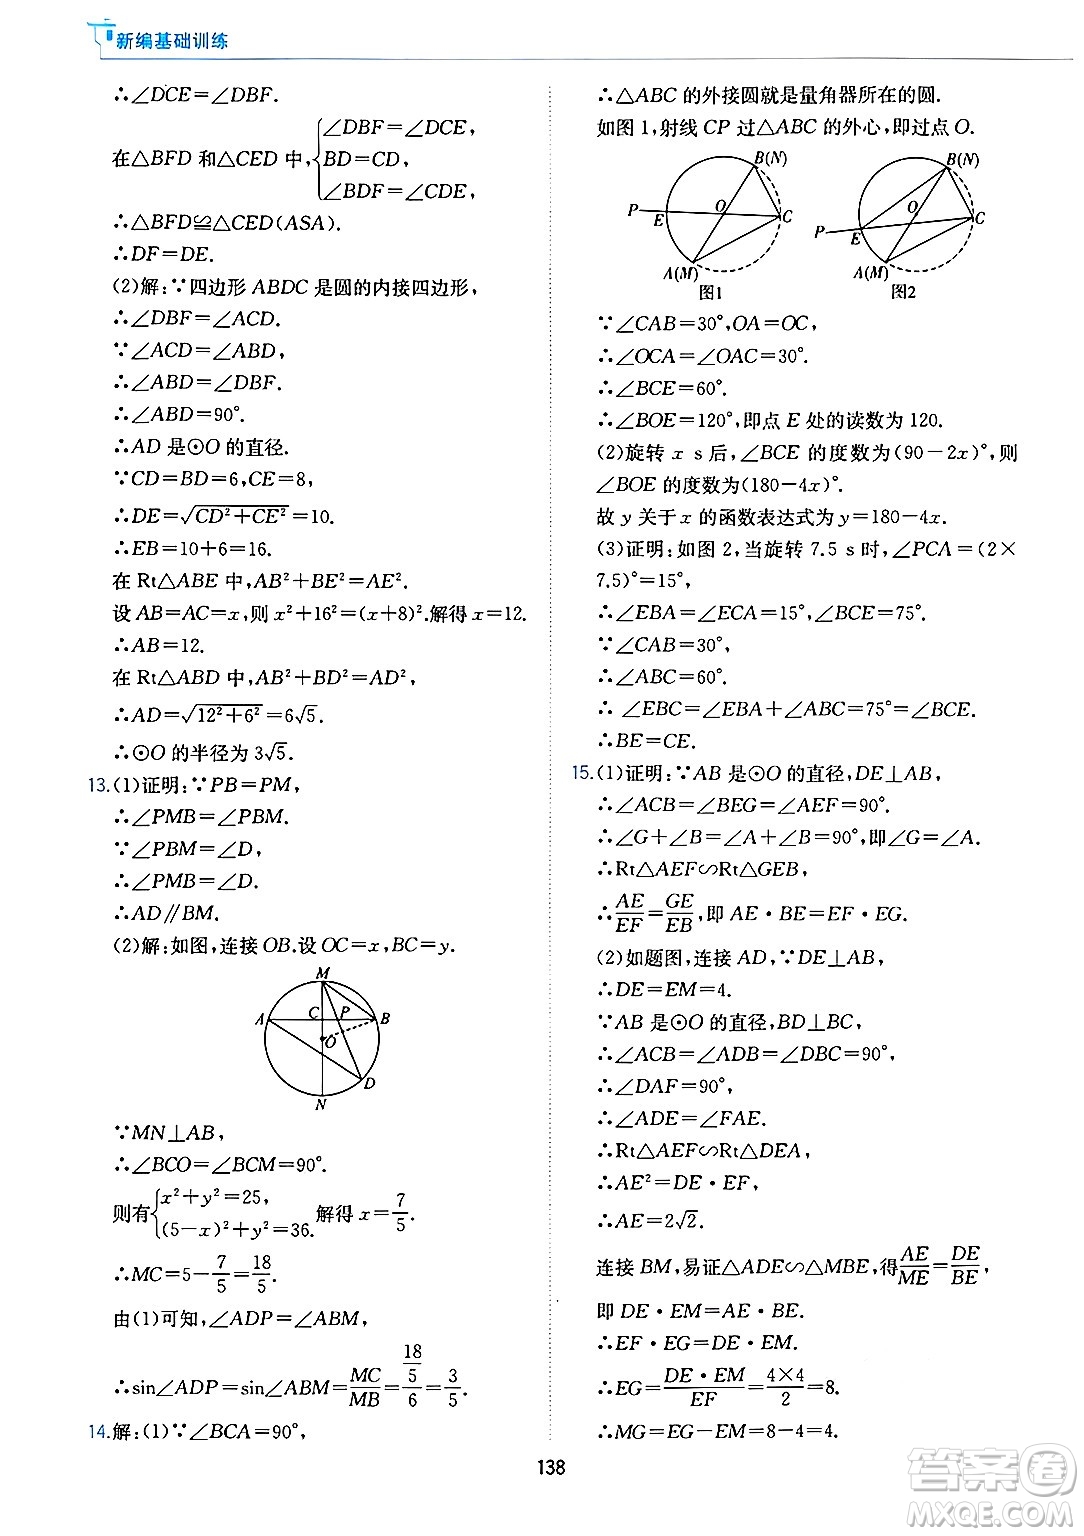 新编基础训练
∴∠DCE=∠DBF.
在△BFD 和△CED 中,{∠DBF=∠DCE,
BD=CD,
∠BDF=∠CDE,
∴△BFD≌△CED(ASA).
∴DF=DE.
(2)解:∵四边形 ABDC 是圆的内接四边形,
∴∠DBF=∠ACD.
∵∠ACD=∠ABD,
∴∠ABD=∠DBF.
∴∠ABD=90°.
∴AD 是⊙O 的直径.
∵CD=BD=6,CE=8,
∴DE=√(CD²+CE²)=10.
∴EB=10+6=16.
在 Rt△ABE 中,AB²+BE²=AE².
设 AB=AC=x,则 x²+16²=(x+8)².解得 x=12.
∴AB=12.
在 Rt△ABD 中,AB²+BD²=AD²,
∴AD=√(12²+6²)=6√5.
∴⊙O 的半径为 3√5.
13.(1)证明:∵PB=PM,
∴∠PMB=∠PBM.
∵∠PBM=∠D,
∴∠PMB=∠D.
∴AD∥BM.
(2)解:如图,连接 OB.设 OC=x,BC=y.
M
A C P B
O
D
N
∵MN⊥AB,
∴∠BCO=∠BCM=90°.
则有{x²+y²=25,
(5-x)²+y²=36. 解得 x=7/5.
∴MC=5-7/5=18/5.
由(1)可知,∠ADP=∠ABM,
∴sin∠ADP=sin∠ABM=MC/MB=(18/5)/6=3/5.
14.解:(1)∵∠BCA=90°,
∴△ABC 的外接圆就是量角器所在的圆.
如图 1,射线 CP 过△ABC 的外心,即过点 O.
B(N)
P E O C
A(M)
图1
B(N)
O C
P E
A(M)
图2
∵∠CAB=30°,OA=OC,
∴∠OCA=∠OAC=30°.
∴∠BCE=60°.
∴∠BOE=120°,即点 E 处的读数为 120.
(2)旋转 x s后,∠BCE 的度数为(90-2x)°,则
∠BOE 的度数为(180-4x)°.
故 y 关于 x 的函数表达式为 y=180-4x.
(3)证明:如图 2,当旋转 7.5 s时,∠PCA=(2×
7.5)°=15°,
∴∠EBA=∠ECA=15°,∠BCE=75°.
∵∠CAB=30°,
∴∠ABC=60°.
∴ ∠EBC=∠EBA+∠ABC=75°=∠BCE.
∴BE=CE.
15.(1)证明:∵AB 是⊙O 的直径,DE⊥AB,
∴∠ACB=∠BEG=∠AEF=90°.
∴∠G+∠B=∠A+∠B=90°,即∠G=∠A.
∴Rt△AEF∽Rt△GEB.
∴AE/EF=GE/EB,即 AE·BE=EF·EG.
(2)如题图,连接 AD,∵DE⊥AB,
∴DE=EM=4.
∵AB 是⊙O 的直径,BD⊥BC,
∴∠ACB=∠ADB=∠DBC=90°,
∴∠DAF=90°.
∴∠ADE=∠FAE.
∴Rt△AEF∽Rt△DEA.
∴AE²=DE·EF,
∴AE=2√2.
连接 BM,易证△ADE∽△MBE,得AE/ME=DE/BE,
即 DE·EM=AE·BE.
∴EF·EG=DE·EM.
∴EG=DE·EM/EF=4×4/2=8.
∴MG=EG-EM=8-4=4.
138
答案卷
MXQE.COM